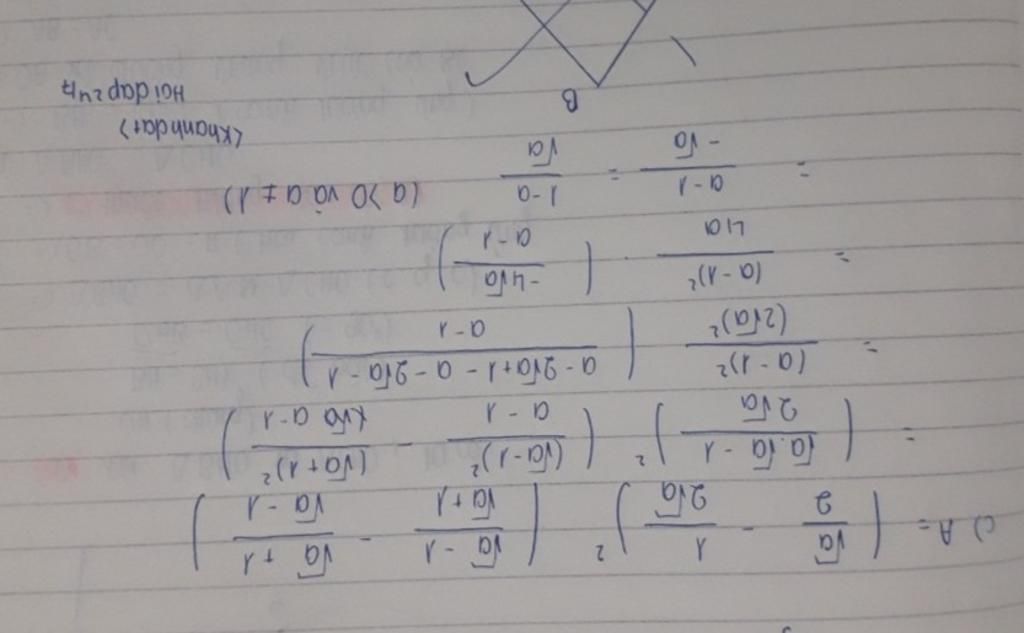 c) A = (√a/2 - 1/(2√a))² ((√a - 1)/(√a + 1) - (√a + 1)/(√a - 1))
= ((√a.√a - 1)/(2√a))² ((√a - 1)²/(a - 1) - (√a + 1)²/(a - 1))
= (a - 1)²/(2√a)² ((a - 2√a + 1 - a - 2√a - 1)/(a - 1))
= (a - 1)²/(4a) . (-4√a/(a - 1))
= (a - 1)/(-√a) = (1 - a)/√a (a > 0 và a ≠ 1)
<Khanhdat>
Hoidap247
B